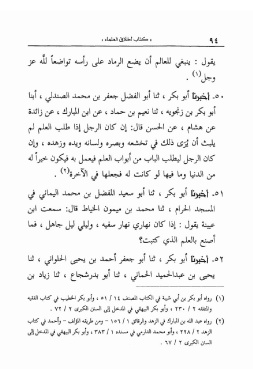 ٩٤
« كتاب أخلاق العلماء »
يقول : ينبغي للعالم أن يضع الرماد على رأسه تواضعاً لله عز
وجل(١) .
٥٠ ـ أخبرنا أبو بكر ، ثنا أبو الفضل جعفر بن محمد الصندلي ، أبنا
أبو بكر بن زنجويه ، ثنا نعيم بن حماد ، عن ابن المبارك ، عن زائدة
عن هشام ، عن الحسن قال: إن كان الرجل إذا طلب العلم لم
يلبث أن يُرَى ذلك في تخشعه وبصره ولسانه ويده وزهده ، وإن
كان الرجل ليطلب الباب من أبواب العلم فيعمل به فيكون خيراً له
من الدنيا وما فيها لو كانت له فجعلها في الآخرة(٢) .
٥١ ـ أخبرنا أبو بكر ، ثنا أبو سعيد المفضل بن محمد اليماني في
المسجد الحرام ، ثنا محمد بن ميمون الخياط قال: سمعت ابن
عيينة يقول : إذا كان نهاري نهار سفيه ، وليلي ليل جاهل ، فما
أصنع بالعلم الذي كتبت؟
٥٢ ـ أخبرنا أبو بكر ، ثنا أبو جعفر أحمد بن يحيى الحلواني ، ثنا
يحيى بن عبدالحميد الحماني ، ثنا أبو بدر شجاع ، ثنا زياد بن
(١) رواه أبو بكر بن أبي شيبة في الكتاب المصنف ١٤ / ٥١ ، وأبو بكر الخطيب في كتاب الفقيه
والمتفقه ٢ / ٢٣٠ ، وأبو بكر البيهقي في المدخل إلى السنن الكبرى ٢ / ٧٢ .
(٢) رواه عبد الله بن المبارك في الزهد والرقائق ١ / ١٥٦ – ومن طريقه المؤلف – وأحمد في كتاب
الزهد ٢ / ٢٩٨ ، وأبو محمد الدارمي في مسنده ١ / ٣٨٣ ، وأبو بكر البيهقي في المدخل إلى
السنن الكبرى ٢ / ٦٧ .